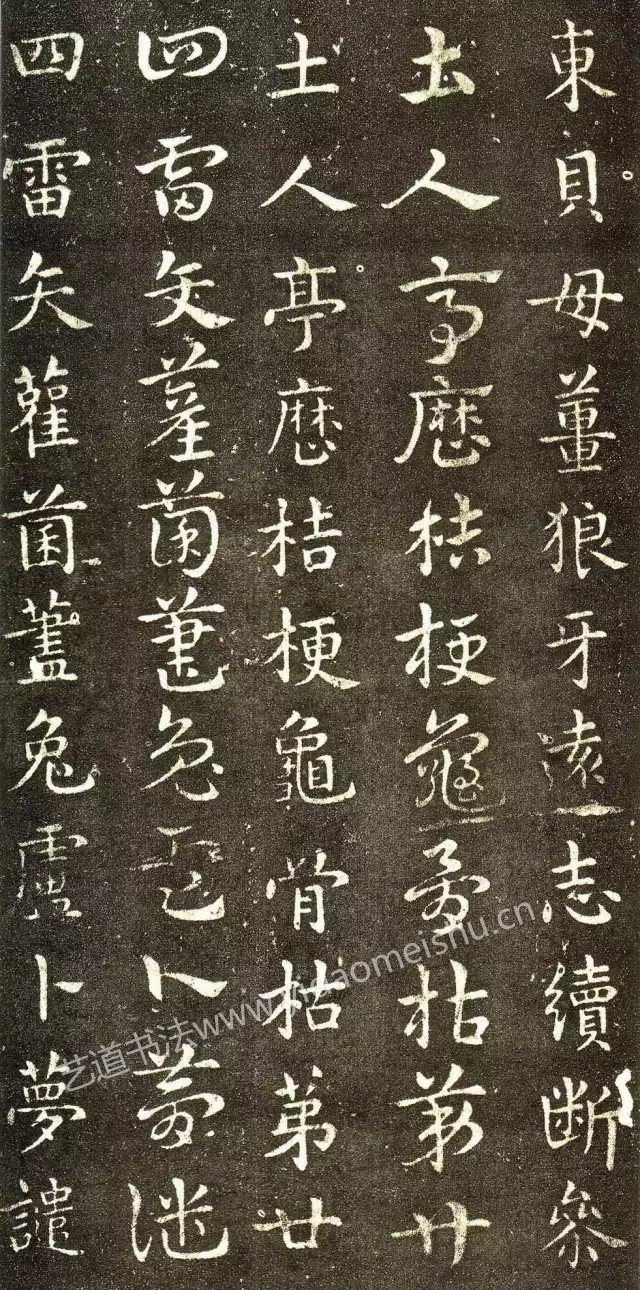 東貝母薑狼牙遠志續斷參
土人亭厯桔梗龜骨枯弟廿
土人亭厯桔梗龜骨枯弟廿
四雷矢雚菌藎兔卜夢譴
四雷矢雚菌藎兔卜夢譴
艺道书法www.yidaomeishu.cn